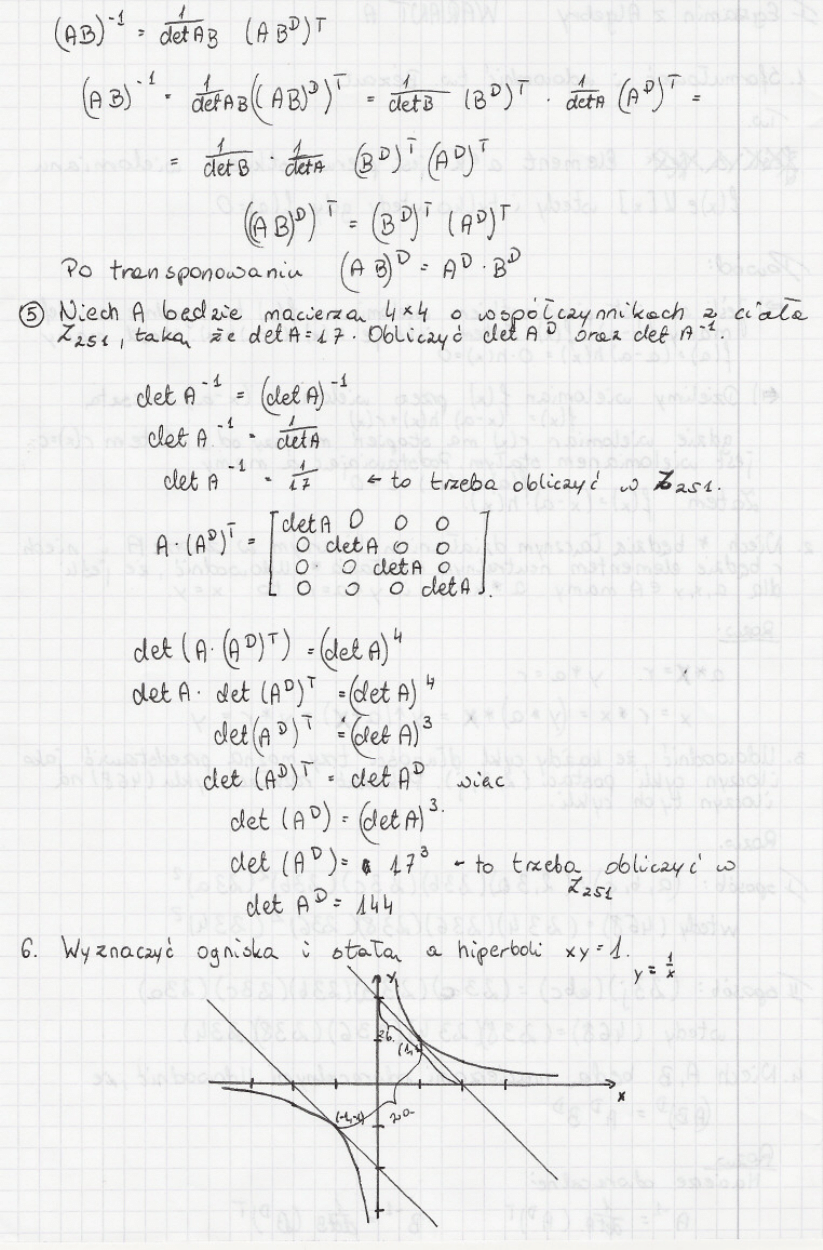 (AB)⁻¹ = 1/detAB (ABᴰ)ᵀ
(AB)⁻¹ = 1/detAB ((AB)ᴰ)ᵀ = 1/detB (Bᴰ)ᵀ · 1/detA (Aᴰ)ᵀ =
= 1/detB · 1/detA (Bᴰ)ᵀ (Aᴰ)ᵀ
((AB)ᴰ)ᵀ = (Bᴰ)ᵀ (Aᴰ)ᵀ
Po transponowaniu (AB)ᴰ = Aᴰ · Bᴰ
⑤ Niech A będzie macierzą 4×4 o współczynnikach z ciała
Z₂₅₁, taką że det A = 17. Obliczyć det Aᴰ oraz det A⁻¹.
det A⁻¹ = (det A)⁻¹
det A⁻¹ = 1/detA
det A⁻¹ = 1/17 ← to trzeba obliczyć w Z₂₅₁.
A · (Aᴰ)ᵀ = [detA 0 0 0
0 detA 0 0
0 0 detA 0
0 0 0 detA].
det (A · (Aᴰ)ᵀ) = (det A)⁴
det A · det (Aᴰ)ᵀ = (det A)⁴
det (Aᴰ)ᵀ = (det A)³
det (Aᴰ)ᵀ = det Aᴰ więc
det (Aᴰ) = (det A)³.
det (Aᴰ) = 17³ – to trzeba obliczyć w
Z₂₅₁
det Aᴰ = 144
6. Wyznaczyć ogniska i stałą a hiperboli xy = 1.
y = 1/x
y
2b.
(1,1)
x
(-1,-1)
2a